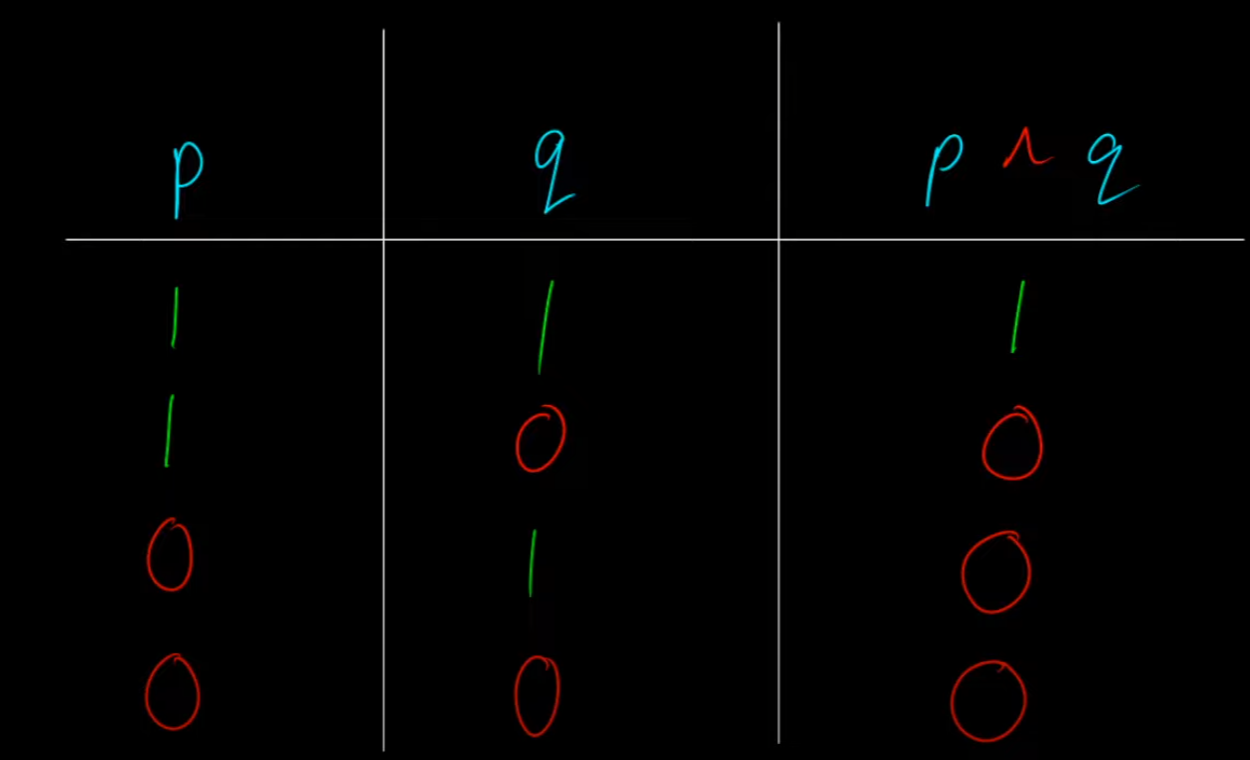 p q p ∧ q
1 1 1
1 0 0
0 1 0
0 0 0